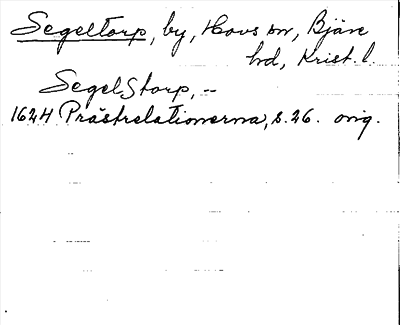 Segeltorp, by, Hovs sn, Bjäre
hd, Krist. l.
SegelStorp, --
1624 Prästrelationerna, s. 26. orig.